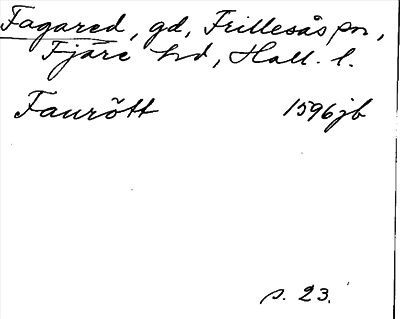 Fagared, gd, Frillesås sn,
Fjäre hd, Hall. l.
Faurött 1596 jb
s. 23.